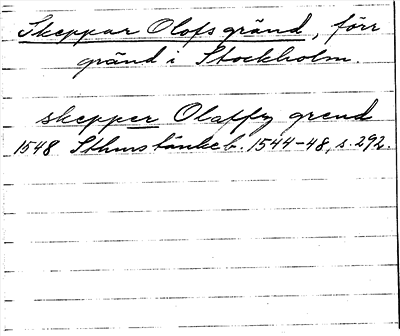 Skeppar Olofs gränd, förr
gränd i Stockholm.
skepper Olaffz grend
1548 Sthms tänkeb. 1544-48, s. 292.